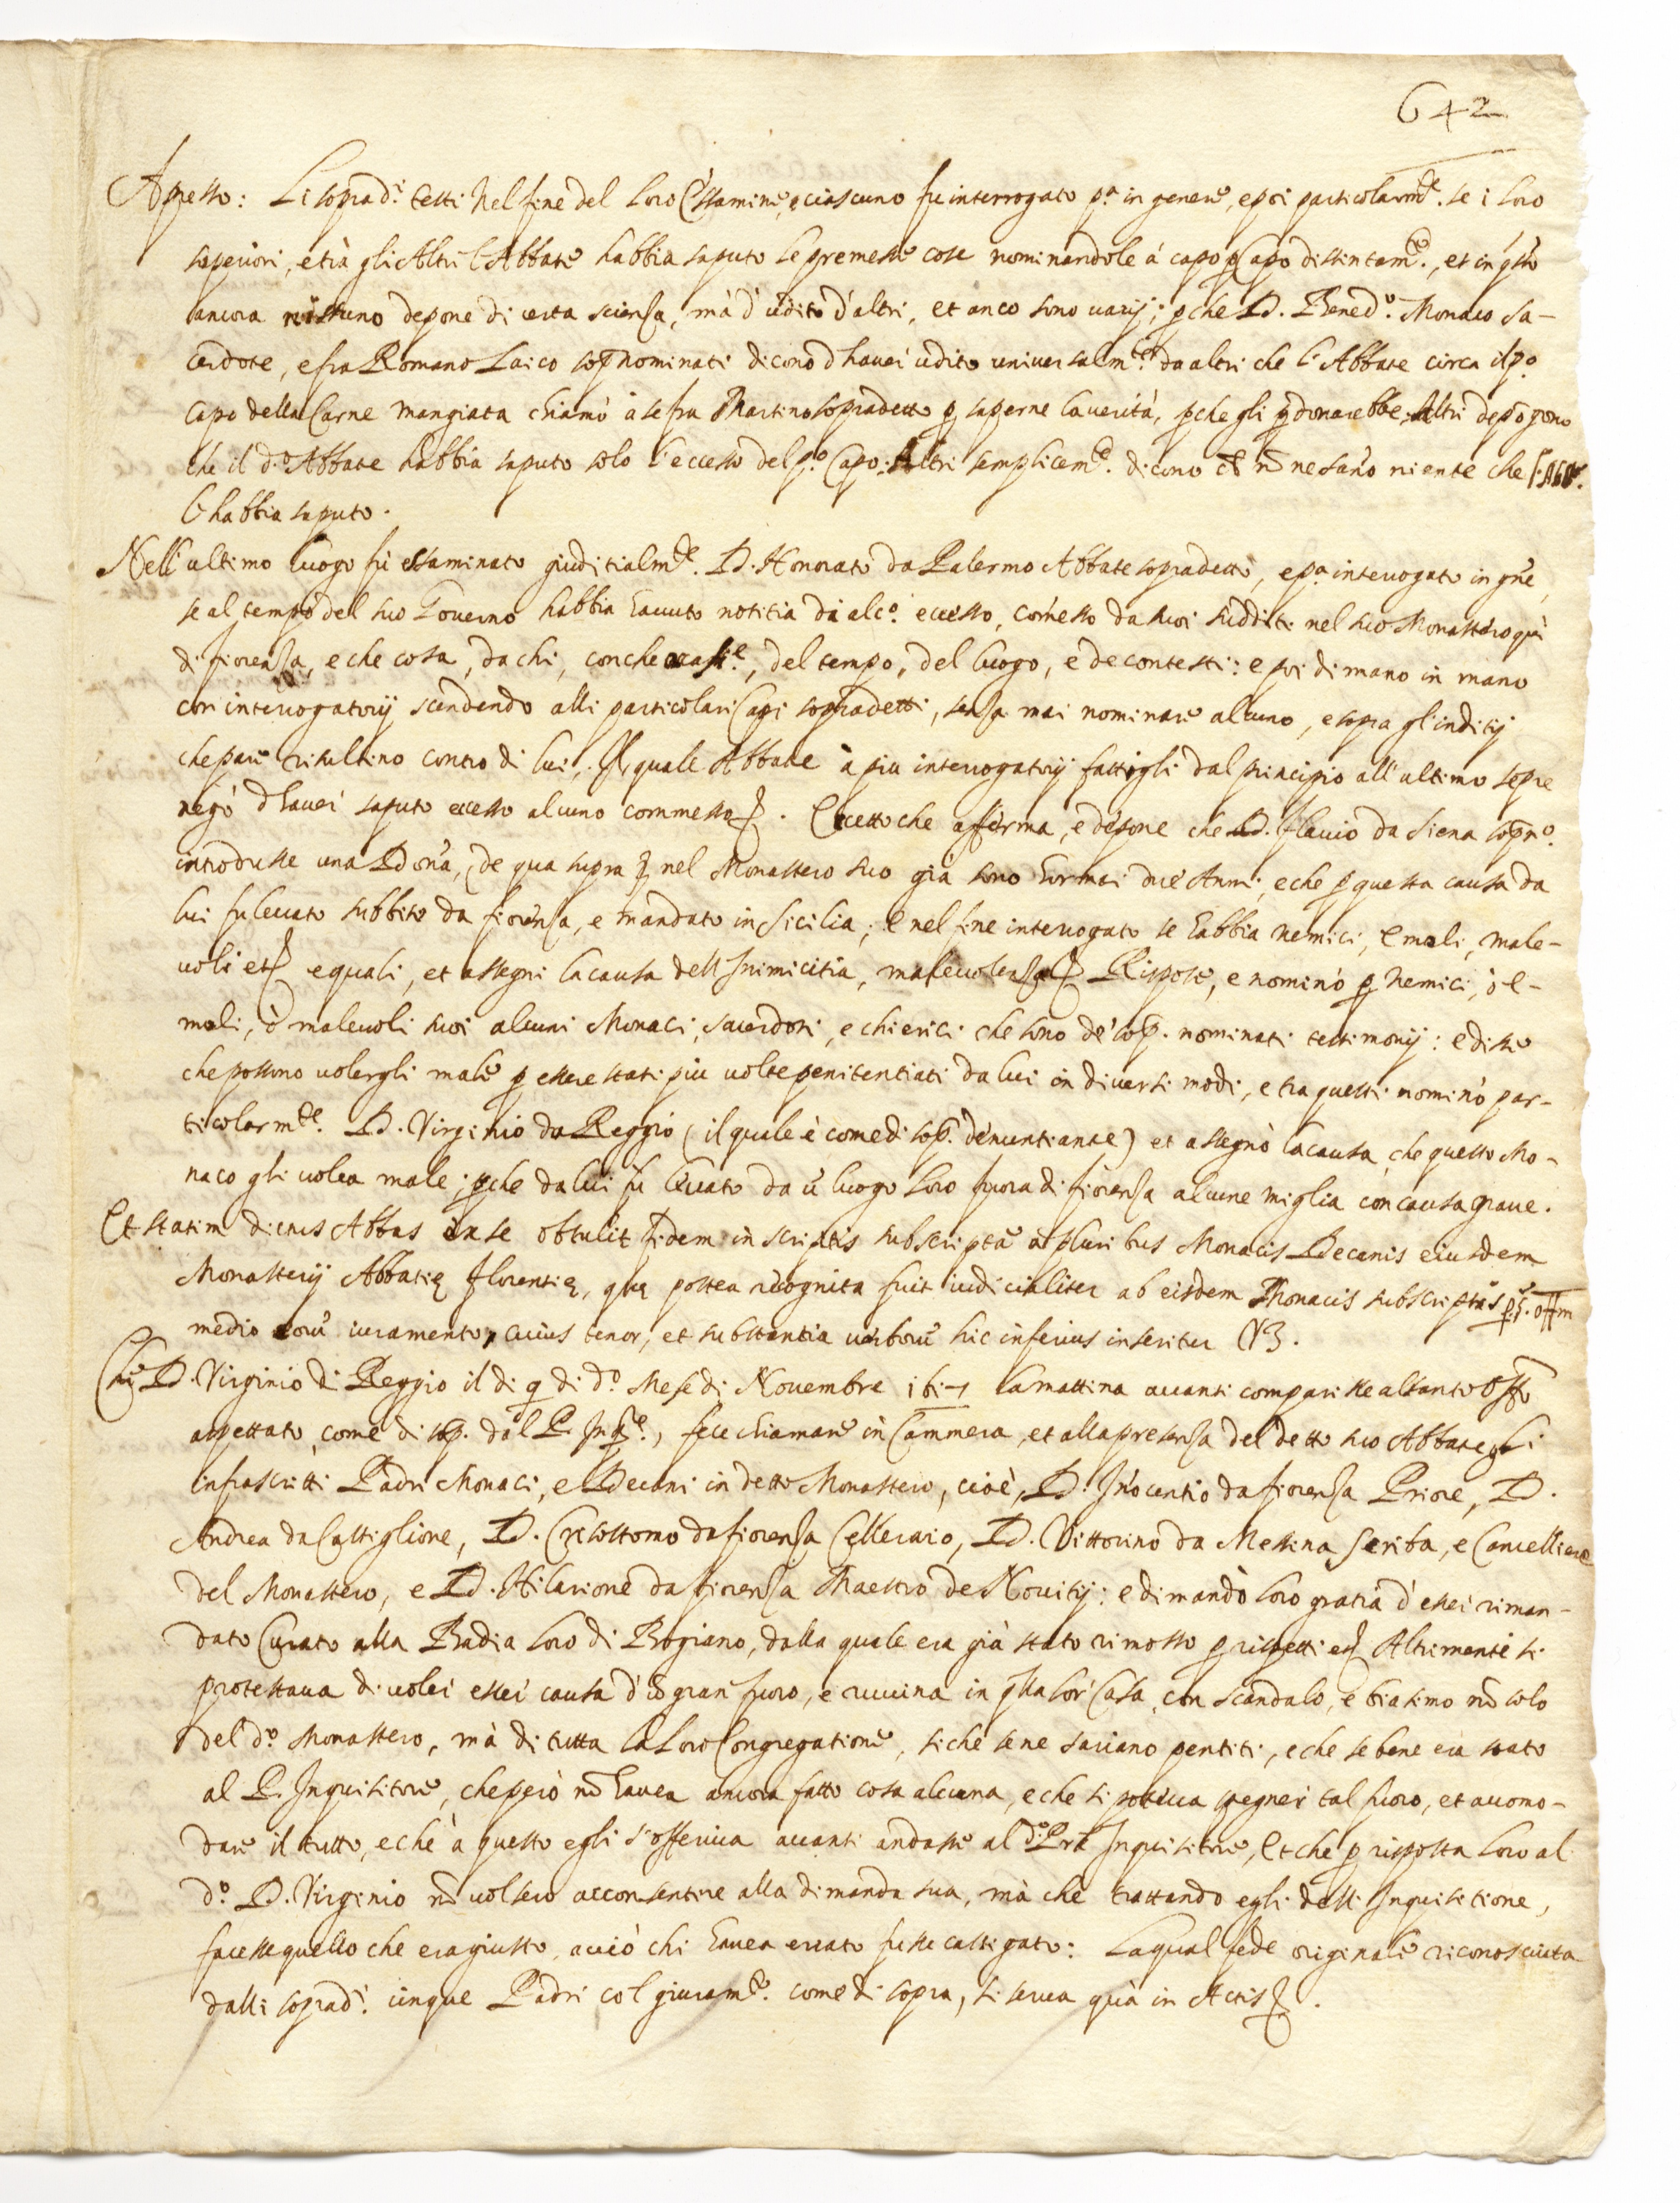 642
Apresso: Li soprad.i testi nel fine del loro Essamine, e ciascuno fu interrogato p.a in genere, e poi particolarm.te se i loro
superiori, e trà gli Altri l'Abbate habbia saputo le premesse cose nominandole à capo p capo distintam.te, et in qsto
ancora nissuno depone di certa scienza, mà d'udito d'altri, et anco sono varij; pche D. Bened.o Monaco Sa-
cerdote, e fra Romano Laico sop nominati dicono d'haver udito universalm.te da altri che l'Abbate circa il p.o
capo della Carne mangiata chiamò à se fra Martino sopradetto p saperne la verità, pche gli pdonarebbe: Altri depōgono
che il d.o Abbate habbia saputo solo l'eccesso del p.o Capo: Altri semplicem.te dicono ch nō ne sāno niente che l'Abb.e
l'habbia saputo.
Nell'ultimo luogo fù essaminato giuditialm.te D. Honorato da Palermo Abbate sopradetto, e p.a interrogato in gñe,
se al tempo del suo Governo habbia havuto notitia di alc.o eccesso, comesso da suoi sudditi nel suo Monastero quì
di fiorenza, e che cosa, da chi, con che occas.e, del tempo, del luogo, e de contesti: e poi di mano in mano
con interrogatorij scendendo alli particolari Capi sopradetti, senza mai nominare alcuno, e sopra gl'inditij
che pare risultino contro di lui. Il quale Abbate à piu interrogatorij fattigli dal principio all'ultimo sēpre
negò d'haver saputo eccesso alcuno commesso. Eccetto che afferma, e depone che D. flavio da Siena sopn.o
introdusse una Dōna, de qua supra nel Monastero suo già sono hormai due Anni, e che p questa causa da
lui fu levato subbito da fiorenza, e mandato in Sicilia; E nel fine interrogato se habbia nemici, Emoli, male-
voli et equali, et assegni la causa dell'Inimicitia, malevolenza Rispose, e nominò p nemici, ò e-
moli, ò malevoli suoi alcuni Monaci, sacerdoti, e chierici che sono de' sop. nominati testimonij: e disse
che possono volergli male p essere stati più volte penitentiati da lui in diversi modi, e tra questi nominò par-
ticolarm.te D. Virginio da Reggio (il quale è come di sop. denuntiante) et assegnò la causa, che questo Mo-
naco gli volea male; pche da lui fù levato da ū luogo loro fuora di fiorenza alcune miglia con causa grave.
Et statim dictus Abbas ex se obtulit fidem in scriptis subscriptā à pluribus Monacis Decanis eiusdem
Monasterij Abbatię florentię, quę postea recognita fuit iudicialiter ab eisdem Monacis subscriptis
medio eorū iuramento, cuius tenor, et substantia verborū hic inferius inseritur VZ.
Che D. Virginio di Reggio il di 9 di d.o Mese di Novembre la mattina avanti comparisse al santo Offo
aspettato, come di sop. dal P. Inq.re, fece chiamare in Cammera, et alla presenza del detto suo Abbate gli
infrascritti Padri Monaci, e Decani in detto Monastero, cioè, D. Inocentio da fiorenza Priore, D.
Andrea da Castiglione, D. Crisostomo da fiorenza Celleraio, D. Vittorino da Messina Scriba, e Cancelliere
del Monastero, e D. Hilarione da fiorenza Maestro de Novitij: e dimandò loro gratia d'esser riman-
dato Curato alla Badia loro di Bogiano, dalla quale era già stato rimosso p rispetti et Altrimente si
protestava di voler esser causa d'ū gran fuoro, e ruvina in qlla lor Casa, con scandalo, e biasimo nō solo
del d.o Monastero, mà di tutta la loro Congregatione, si che se ne sariano pentiti, e che se bene era stato
al P. Inquisitore, che però nō havea ancora fatto cosa alcuna, e che si poteva spegner tal fuoro, et accomo-
dare il tutto, e che à questo egli s'offeriva avanti andasse al d.o Pre Inquisitore, Et che p risposta loro al
d.o D. Virginio nō volsero acconsentire alla dimanda sua, mà che trattando egli dell'Inquisitione,
facesse quello che era giusto, acciò chi havea errato fusse castigato: La qual fede originale riconosciuta
dalli soprad.i cinque Padri col giuram.to come di sopra, si serva quà in Actis.